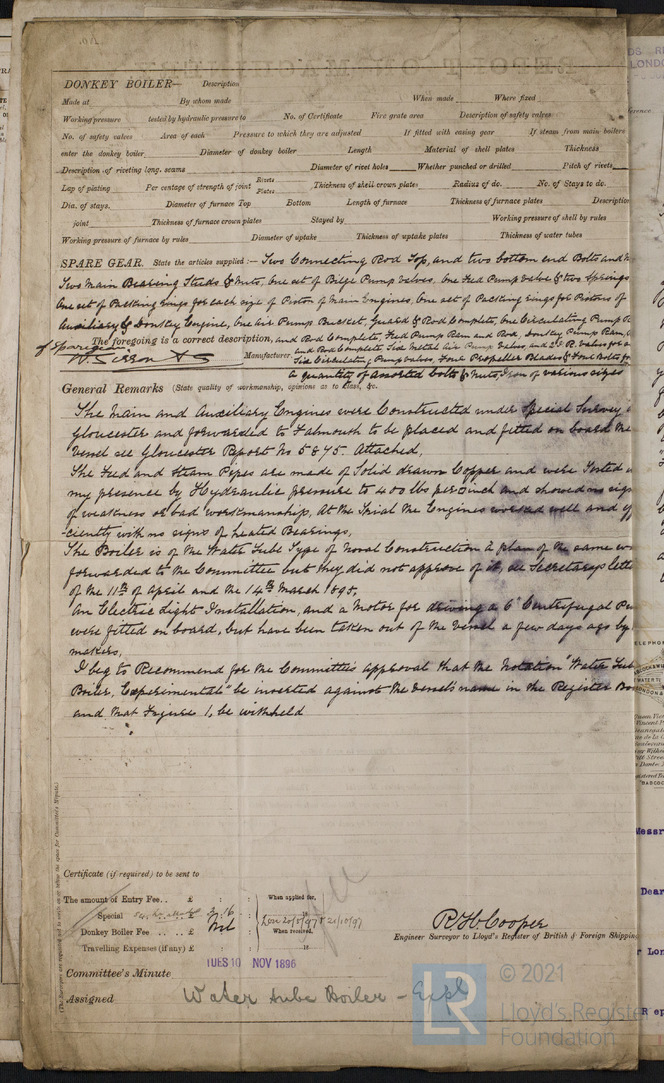 DONKEY BOILER— Description
Made at By whom made When made Where fixed
Working pressure tested by hydraulic pressure to No. of Certificate Fire grate area Description of safety valves
No. of safety valves Area of each Pressure to which they are adjusted If fitted with easing gear If steam from main boilers
enter the donkey boiler Diameter of donkey boiler Length Material of shell plates Thickness
Description of riveting long. seams Diameter of rivet holes Whether punched or drilled Pitch of rivets
Lap of plating Per centage of strength of joint Rivets Plates Thickness of shell crown plates Radius of do. No. of Stays to do.
Dia. of stays. Diameter of furnace Top Bottom Length of furnace Thickness of furnace plates Description
joint Thickness of furnace crown plates Stayed by Working pressure of shell by rules
Working pressure of furnace by rules Diameter of uptake Thickness of uptake plates Thickness of water tubes
SPARE GEAR. State the articles supplied:— Two Connecting Rod Top, and two bottom end Bolts and N
Two Main Bearing Studs & Nuts, One set of Bilge Pump Valves, One Feed Pump Valve & two Springs
One set of Packing rings for each size of Piston of Main Engines, One set of Packing rings for Pistons of
Auxiliary & Donkey Engine, One Air Pump Bucket, Guard & Rod Complete, One Circulating Pump R
of Spare gear
The foregoing is a correct description, and Rod Complete, Feed Pump Ram and Rod, Donkey Pump Ram,
and Rod Complete Six Metal Air Pump Valves, and 2 I.R. Valves for
W. Sisson Manufacturer. Six Circulating Pump valves, Four Propeller Blades & Four Bolts for
a quantity of assorted bolts & nuts, Iron of various sizes
General Remarks (State quality of workmanship, opinions as to class, &c.
The Main and Auxiliary Engines were Constructed under Special Survey
Gloucester and forwarded to Falmouth to be placed and fitted on board the
Vessel see Gloucester Report No 5875. Attached,
The Feed and Steam Pipes are made of Solid drawn Copper and were Tested
my presence by Hydraulic pressure to 400 lbs per □inch and showed no sign
of weakness or bad workmanship, At the Trial the Engines worked well and eff
ciently with no signs of heated Bearings,
The Boiler is of the Water Tube Type of Novel Construction A plan of the same
forwarded to the Committee but they did not approve of it, see Secretarys lett
of the 11th of April and the 14th March 1895,
An Electric Light Installation, and a Motor for driving a 6" Centrifugal Pu
were fitted on board, but have been taken out of the Vessel a few days ago by
makers,
I beg to Recommend for the Committee's approval that the Notation "Water Tub
Boiler, Experimental" be inserted against the Vessel's name in the Register Bo
and that Figure 1, be withheld
Certificate (if required) to be sent to
The amount of Entry Fee.. £ : : When applied for,
Special £ 2:16
Donkey Boiler Fee £ Nil When received,
Travelling Expenses (if any) £ : :
R H Cooper
Engineer Surveyor to Lloyd's Register of British & Foreign Shipping
TUES 10 NOV 1896
Committee's Minute
Assigned Water tube Boiler - Expl
LR © 2021
Lloyd's Register
Foundation